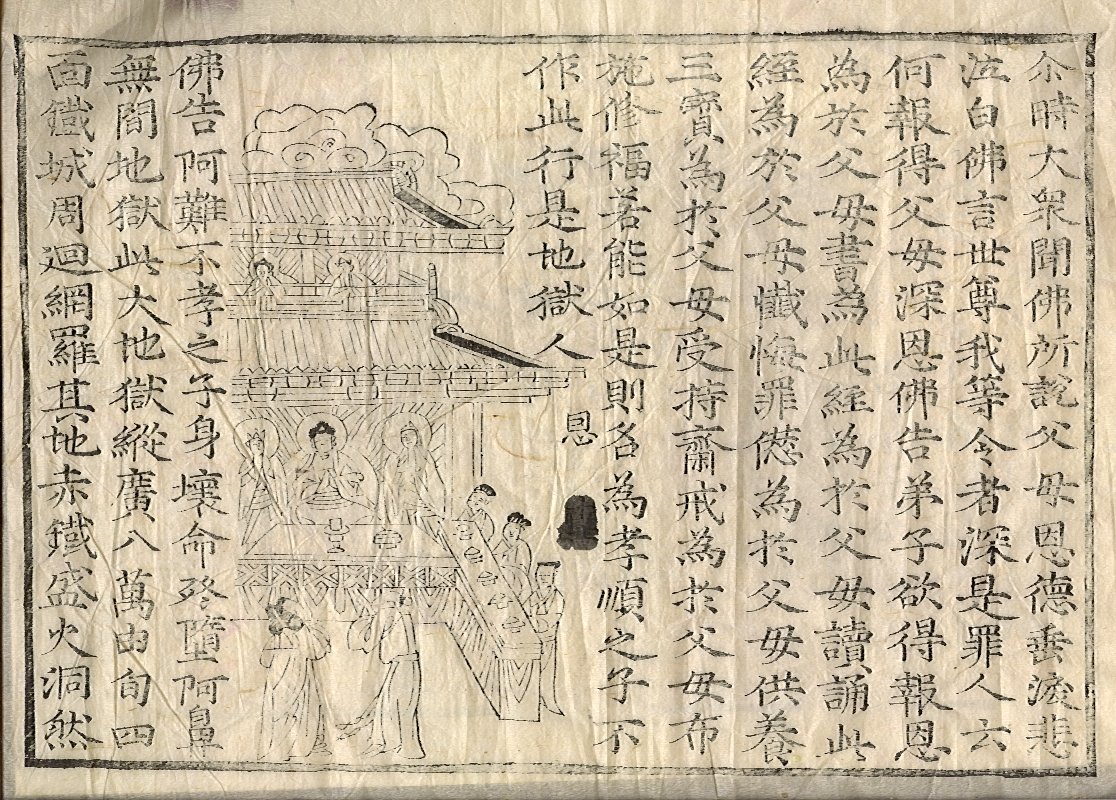 尒時大衆聞佛所說父母恩德垂淚悲
泣白佛言世尊我等今者深是罪人云
何報得父母深恩佛告弟子欲得報恩
為於父母書為此經為於父母讀誦此
經為於父母懺悔罪愆為於父母供養
三寶為於父母受持齋戒為於父母布
施修福若能如是則名為孝順之子不
作此行是地獄人
恩
佛告阿難不孝之子身壞命終墮阿鼻
無間地獄此大地獄縱廣八萬由旬四
面鐵城周迴網羅其地赤鐵盛火洞然